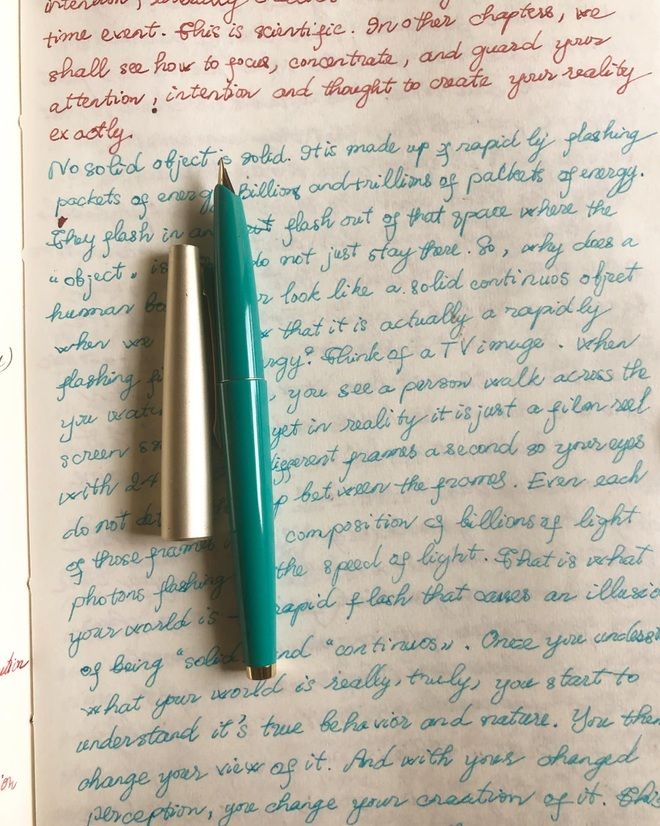 intention, 
time event. This is scientific. In other chapters, we
shall see how to focus, concentrate, and guard your
attention, intention and thought to create your reality
exactly.
No solid object is solid. It is made up of rapidly flashing
packets of energy. Billions and trillions of packets of energy.
They flash in and out flash out of that space where the
"object" is do not just stay there. So, why does a
human look like a solid continuos object
when we that it is actually a rapidly
flashing energy? Think of a TV image. When
you watch you see a person walk across the
screen yet in reality it is just a film reel
with 24 different frames a second so your eyes
do not between the frames. Even each
of those frames composition of billions of light
photons flashing the speed of light. That is what
your world is - rapid flash that causes an illusion
of being "solid" and "continuos". Once you
what your world is really, truly, you start to
understand it's true behavior and nature. You then
change your view of it. And with your changed
perception, you change your creation of it. This